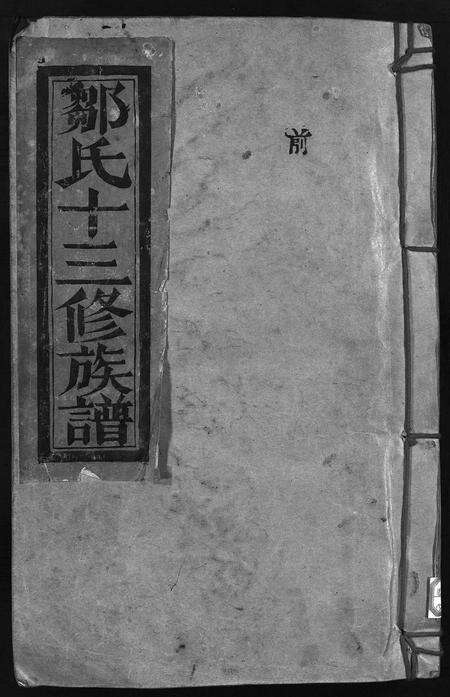 前
鄒氏十三修族譜